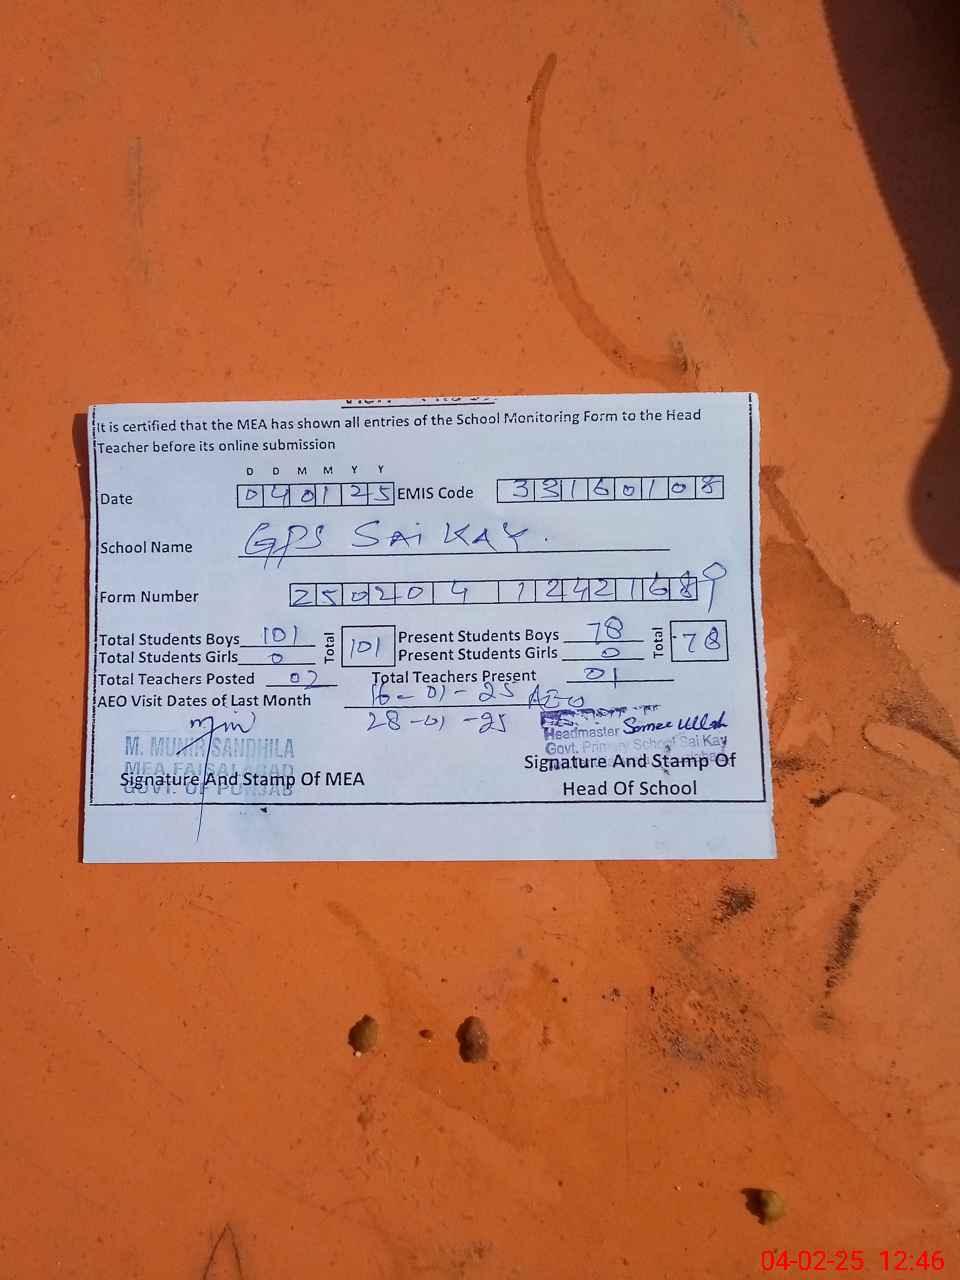 It is certified that the MEA has shown all entries of the School Monitoring Form to the Head
Teacher before its online submission
D D M M Y Y
Date 040125 EMIS Code 33160108
School Name GPS Sai KAY.
Form Number 250204 12421689
Total Students Boys 101 Total 101 Present Students Boys 78 Total 78
Total Students Girls 0 Present Students Girls 0
Total Teachers Posted 02 Total Teachers Present 01
AEO Visit Dates of Last Month 16-01-25 AEO
28-01-25
M. MUNIR SANDHILA
MEA FAISALABAD
GOVT. OF PUNJAB
Signature And Stamp Of MEA
Headmaster
Govt. Primary School Sai Kay
Signature And Stamp Of
Head Of School
04-02-25 12:46